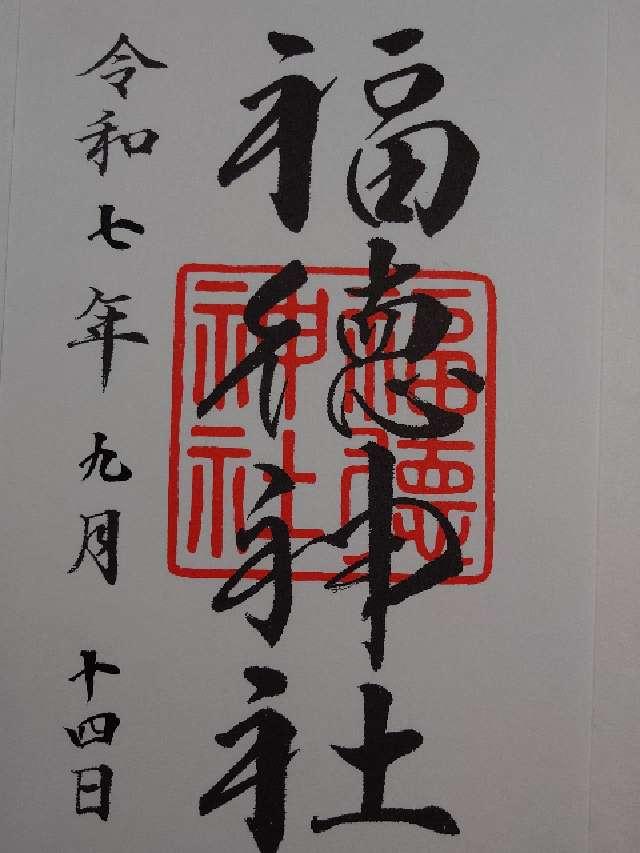 福徳神社
福徳神社
令和七年九月十四日